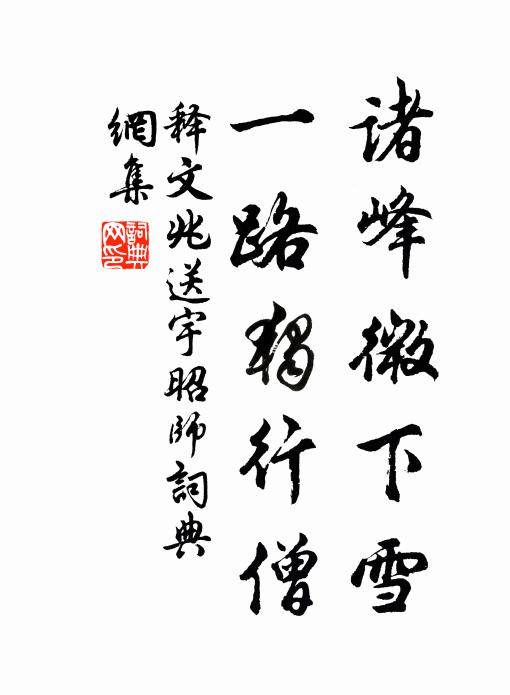 諸峰微下雪
一路独行僧
释文兆送宇昭師詞典
網集
詞典
网印